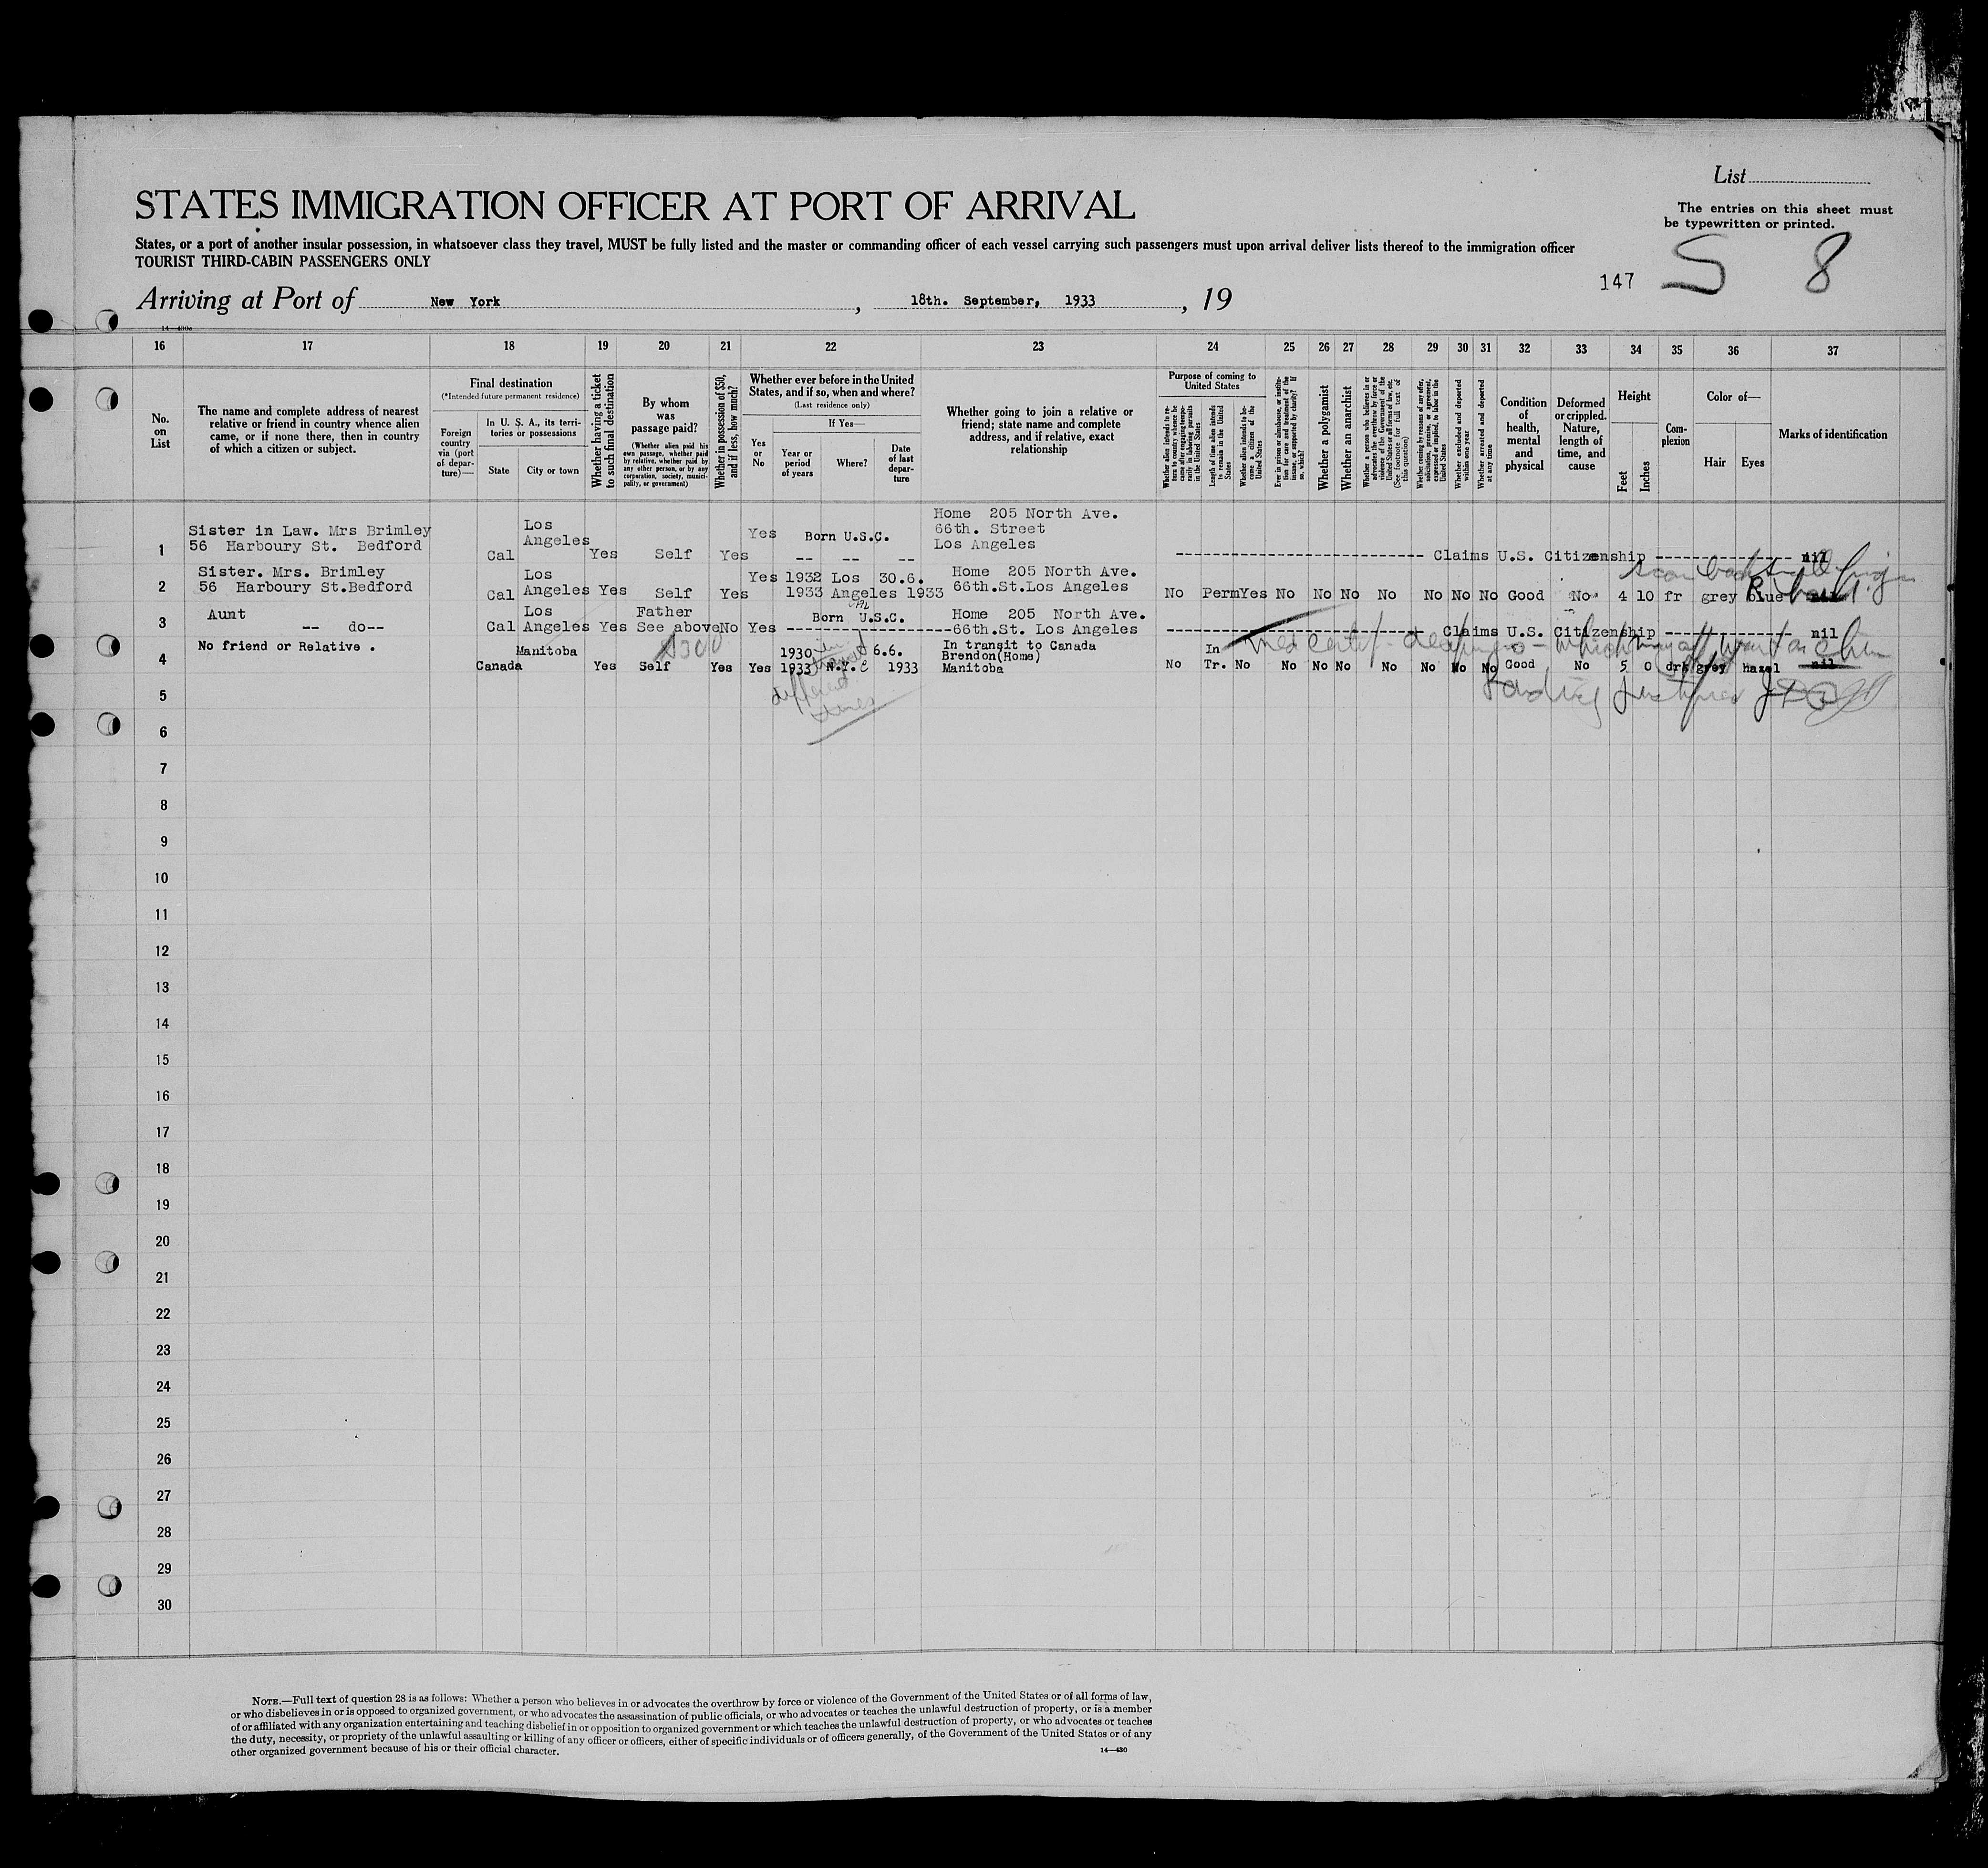 List
STATES IMMIGRATION OFFICER AT PORT OF ARRIVAL
The entries on this sheet must
be typewritten or printed.
States, or a port of another insular possession, in whatsoever class they travel, MUST be fully listed and the master or commanding officer of each vessel carrying such passengers must upon arrival deliver lists thereof to the immigration officer
TOURIST THIRD-CABIN PASSENGERS ONLY
147 S 8
Arriving at Port of New York, 18th. September, 1933, 19
14—430a
16 17 18 19 20 21 22 23 24 25 26 27 28 29 30 31 32 33 34 35 36 37
No. on List
The name and complete address of nearest relative or friend in country whence alien came, or if none there, then in country of which a citizen or subject.
Final destination
(*Intended future permanent residence)
Foreign country via (port of departure)—
In U. S. A., its territories or possessions
State
City or town
Whether having a ticket to such final destination
By whom was passage paid?
(Whether alien paid his own passage, whether paid by relative, whether paid by any other person, or by any corporation, society, municipality, or government)
Whether in possession of $50, and if less, how much?
Whether ever before in the United States, and if so, when and where?
(Last residence only)
Yes or No
If Yes—
Year or period of years
Where?
Date of last departure
Whether going to join a relative or friend; state name and complete address, and if relative, exact relationship
Purpose of coming to United States
Whether alien intends to return to country whence he came after engaging temporarily in laboring pursuits in the United States
Length of time alien intends to remain in the United States
Whether alien intends to become a citizen of the United States
Ever in prison or almshouse, or institution for care and treatment of the insane, or supported by charity? If so, which?
Whether a polygamist
Whether an anarchist
Whether a person who believes in or advocates the overthrow by force or violence of the Government of the United States or all forms of law, etc. (See footnote for full text of this question)
Whether coming by reasons of any offer, solicitation, promise, or agreement, expressed or implied, to labor in the United States
Whether excluded and deported within one year
Whether arrested and deported at any time
Condition of health, mental and physical
Deformed or crippled. Nature, length of time, and cause
Height
Feet
Inches
Complexion
Color of—
Hair
Eyes
Marks of identification
1 Sister in Law. Mrs Brimley 56 Harboury St. Bedford Cal Los Angeles Yes Self Yes Yes Born U.S.C. -- -- -- Home 205 North Ave. 66th. Street Los Angeles ---- Claims U.S. Citizenship ---- nil
2 Sister. Mrs. Brimley 56 Harboury St.Bedford Cal Los Angeles Yes Self Yes Yes 1932 1933 Los Angeles 30.6. 1933 Home 205 North Ave. 66th.St.Los Angeles No Perm Yes No No No No No No No Good No 4 10 fr grey blue nil
3 Aunt -- do-- Cal Los Angeles Yes Father See above No Yes Born U.S.C. ---- Home 205 North Ave. 66th.St. Los Angeles ---- Claims U.S. Citizenship ---- nil
4 No friend or Relative . Canada Manitoba Yes Self $300 Yes Yes 1930 1933 N.Y.C 6.6. 1933 In transit to Canada Brendon(Home) Manitoba No In Tr. No No No No No No No No Good No 5 0 drk grey hazel nil
in transit different times
5
6
7
8
9
10
11
12
13
14
15
16
17
18
19
20
21
22
23
24
25
26
27
28
29
30
NOTE.—Full text of question 28 is as follows: Whether a person who believes in or advocates the overthrow by force or violence of the Government of the United States or of all forms of law,
or who disbelieves in or is opposed to organized government, or who advocates the assassination of public officials, or who advocates or teaches the unlawful destruction of property, or is a member
of or affiliated with any organization entertaining and teaching disbelief in or opposition to organized government or which teaches the unlawful destruction of property, or who advocates or teaches
the duty, necessity, or propriety of the unlawful assaulting or killing of any officer or officers, either of specific individuals or of officers generally, of the Government of the United States or of any
other organized government because of his or their official character.
14—430